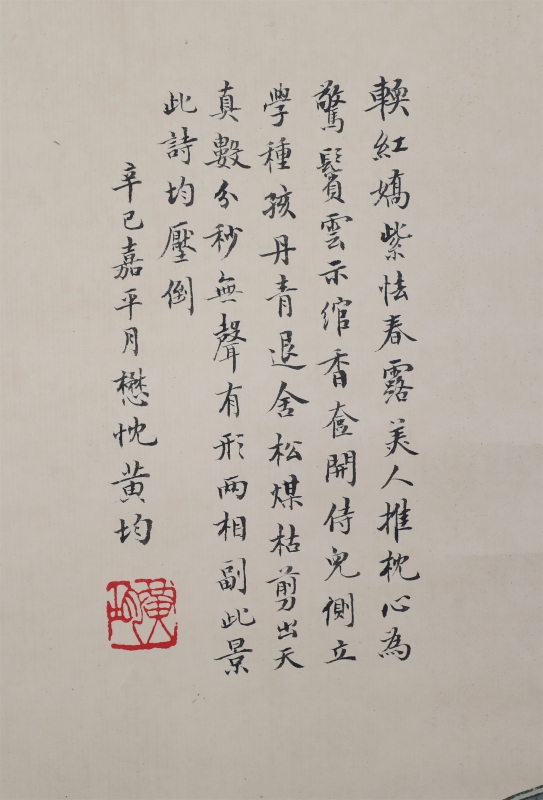 輭紅嬌紫怯春露美人推枕心為
驚鬢雲示綰香奩開侍兒側立
學種孩丹青退舍松煤枯剪出天
真數分秒無聲有形兩相副此景
此詩均壓倒
辛巳嘉平月懋忱黃均
黃均